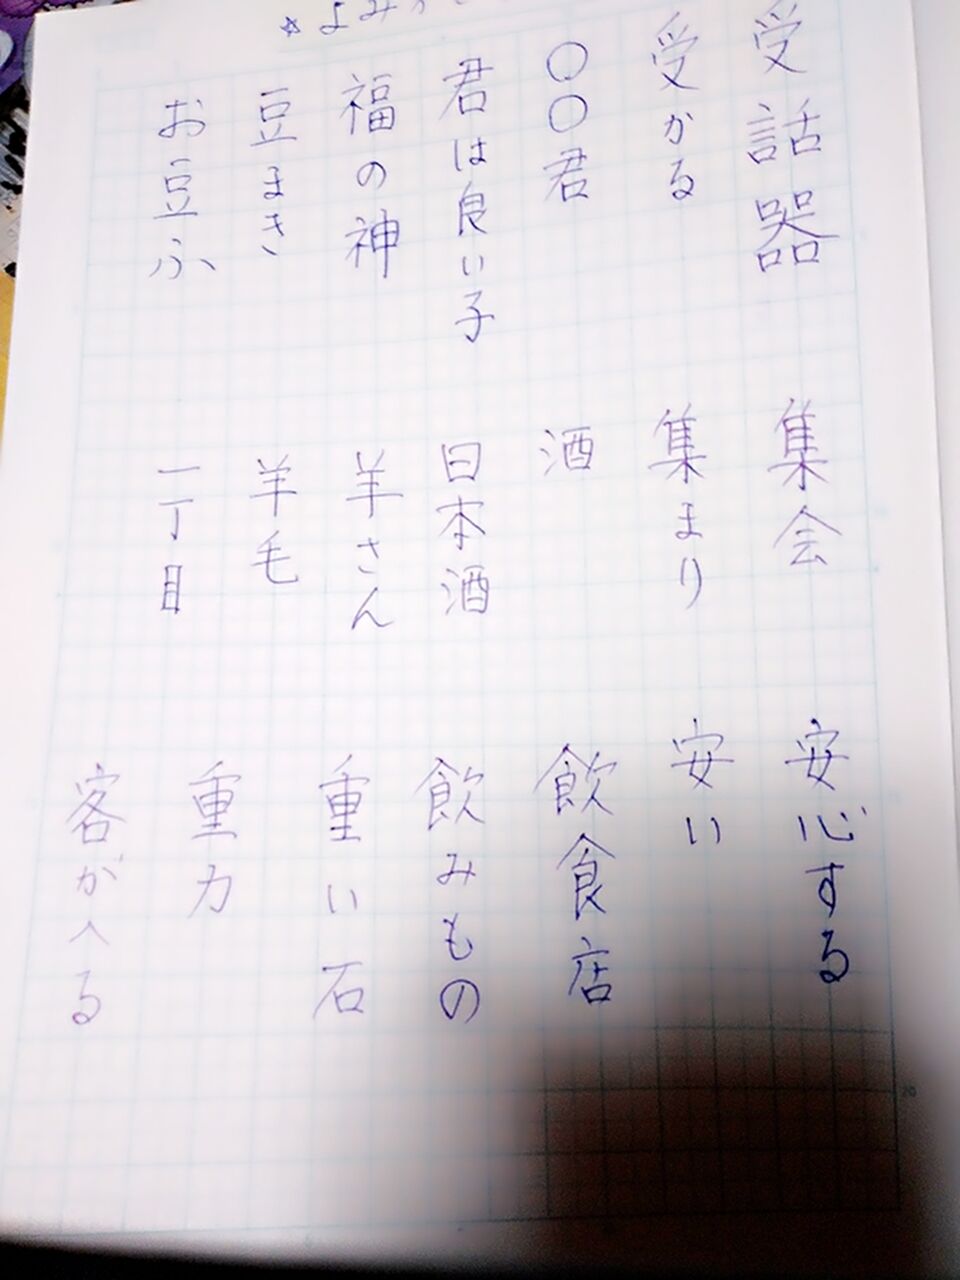 ☆よみか
受話器
受かる
〇〇君
君は良い子
福の神
豆まき
お豆ふ
集会
集まり
酒
日本酒
羊さん
羊毛
一丁目
安心する
安い
飲食店
飲みもの
重い石
重力
客がへる
20